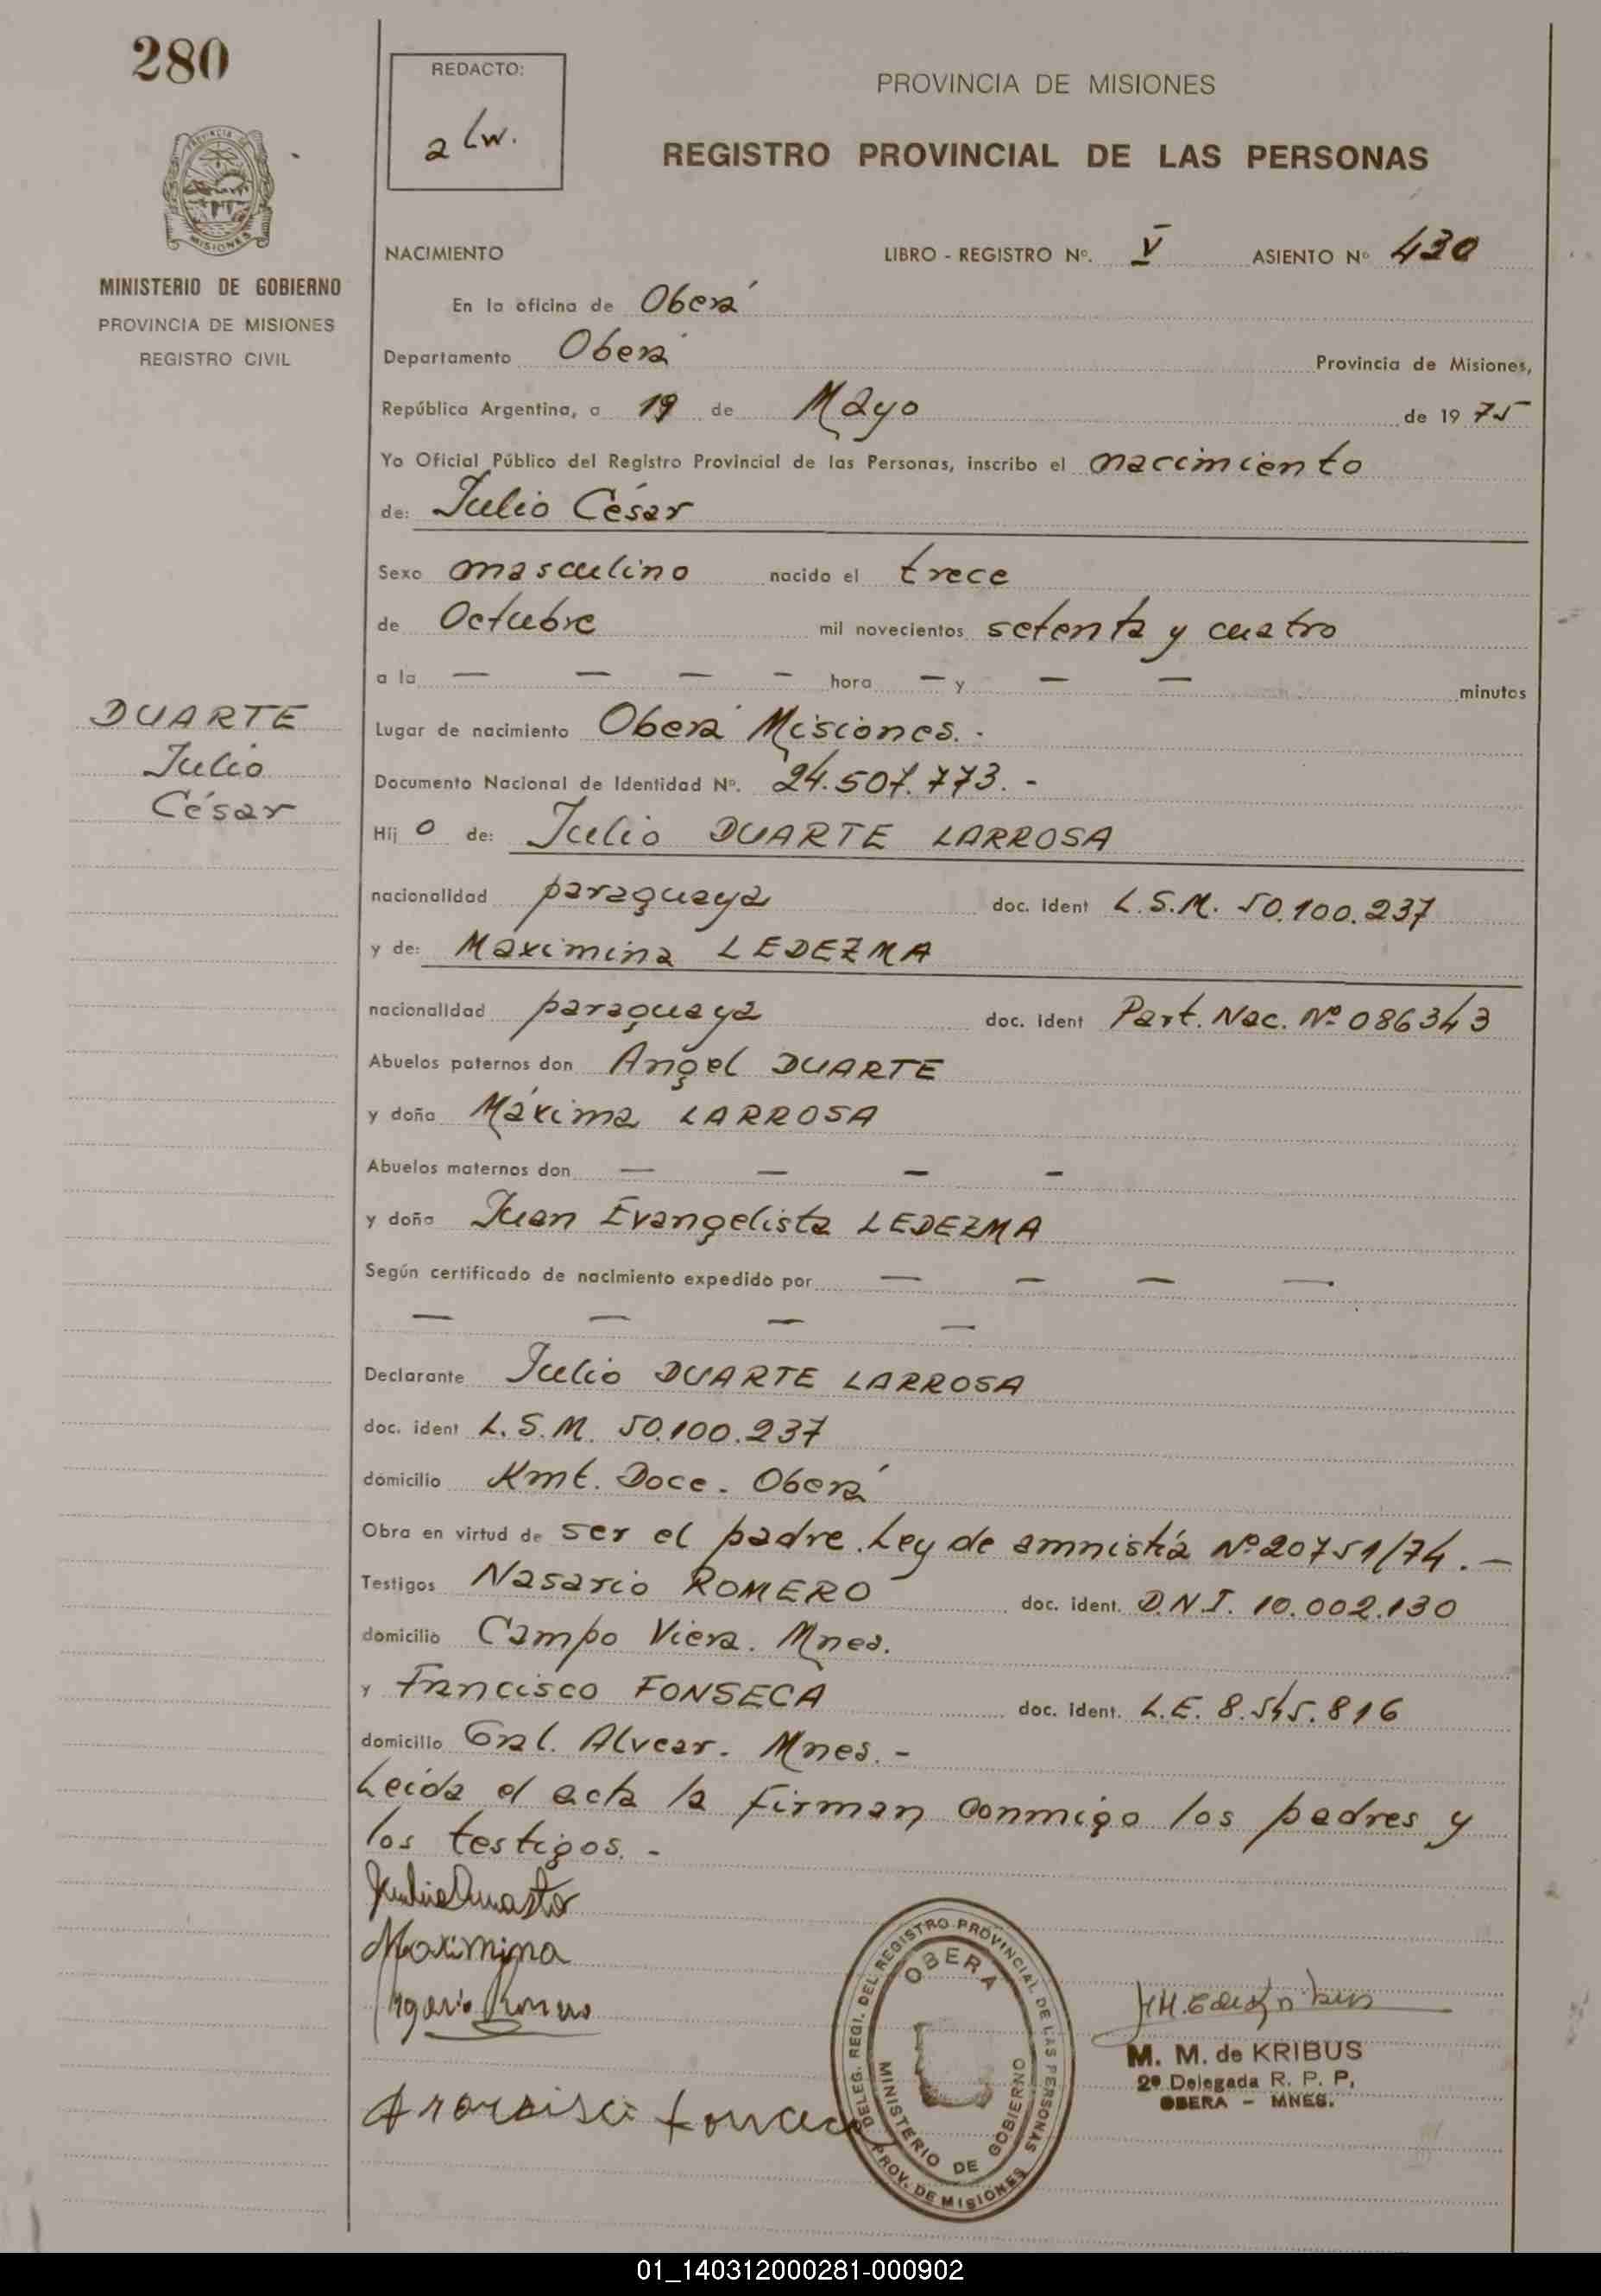 280
REDACTO:
PROVINCIA DE MISIONES
REGISTRO PROVINCIAL DE LAS PERSONAS
MINISTERIO DE GOBIERNO
PROVINCIA DE MISIONES
REGISTRO CIVIL
NACIMIENTO LIBRO - REGISTRO Nº. V ASIENTO Nº 430
En la oficina de Oberá
Departamento Oberá Provincia de Misiones,
República Argentina, a 19 de Mayo de 19 75
Yo Oficial Público del Registro Provincial de las Personas, inscribo el nacimiento
de: Julio César
Sexo masculino nacido el trece
de Octubre mil novecientos setenta y cuatro
a la — — — — hora — y — — minutos
DUARTE
Julio
César
Lugar de nacimiento Oberá Misiones. -
Documento Nacional de Identidad Nº. 24.507.773. -
Hij o de: Julio DUARTE LARROSA
nacionalidad paraguaya doc. ident L.S.M. 50.100.237
y de: Maximina LEDEZMA
nacionalidad paraguaya doc. ident Part. Nac. Nº 086343
Abuelos paternos don Angel DUARTE
y doña Máxima LARROSA
Abuelos maternos don — — — —
y doña Juan Evangelista LEDEZMA
Según certificado de nacimiento expedido por — — — —
— — — —
Declarante Julio DUARTE LARROSA
doc. ident L.S.M. 50.100.237
domicilio Kmt. Doce - Oberá
Obra en virtud de ser el padre. Ley de amnistía Nº 20751/74. —
Testigos Nasario ROMERO doc. ident. D.N.I. 10.002.130
domicilio Campo Viera. Mnes.
y Francisco FONSECA doc. ident. L.E. 8.545.816
domicilio Gral. Alvear. Mnes. -
Leída el acta la firman conmigo los padres y
los testigos. -
Maximina
DELEG. REGI. DEL REGISTRO PROVINCIAL DE LAS PERSONAS
PROV. DE MISIONES
OBERA
MINISTERIO DE GOBIERNO
M. M. de KRIBUS
2ª Delegada R. P. P.
OBERA - MNES.
01_140312000281-000902